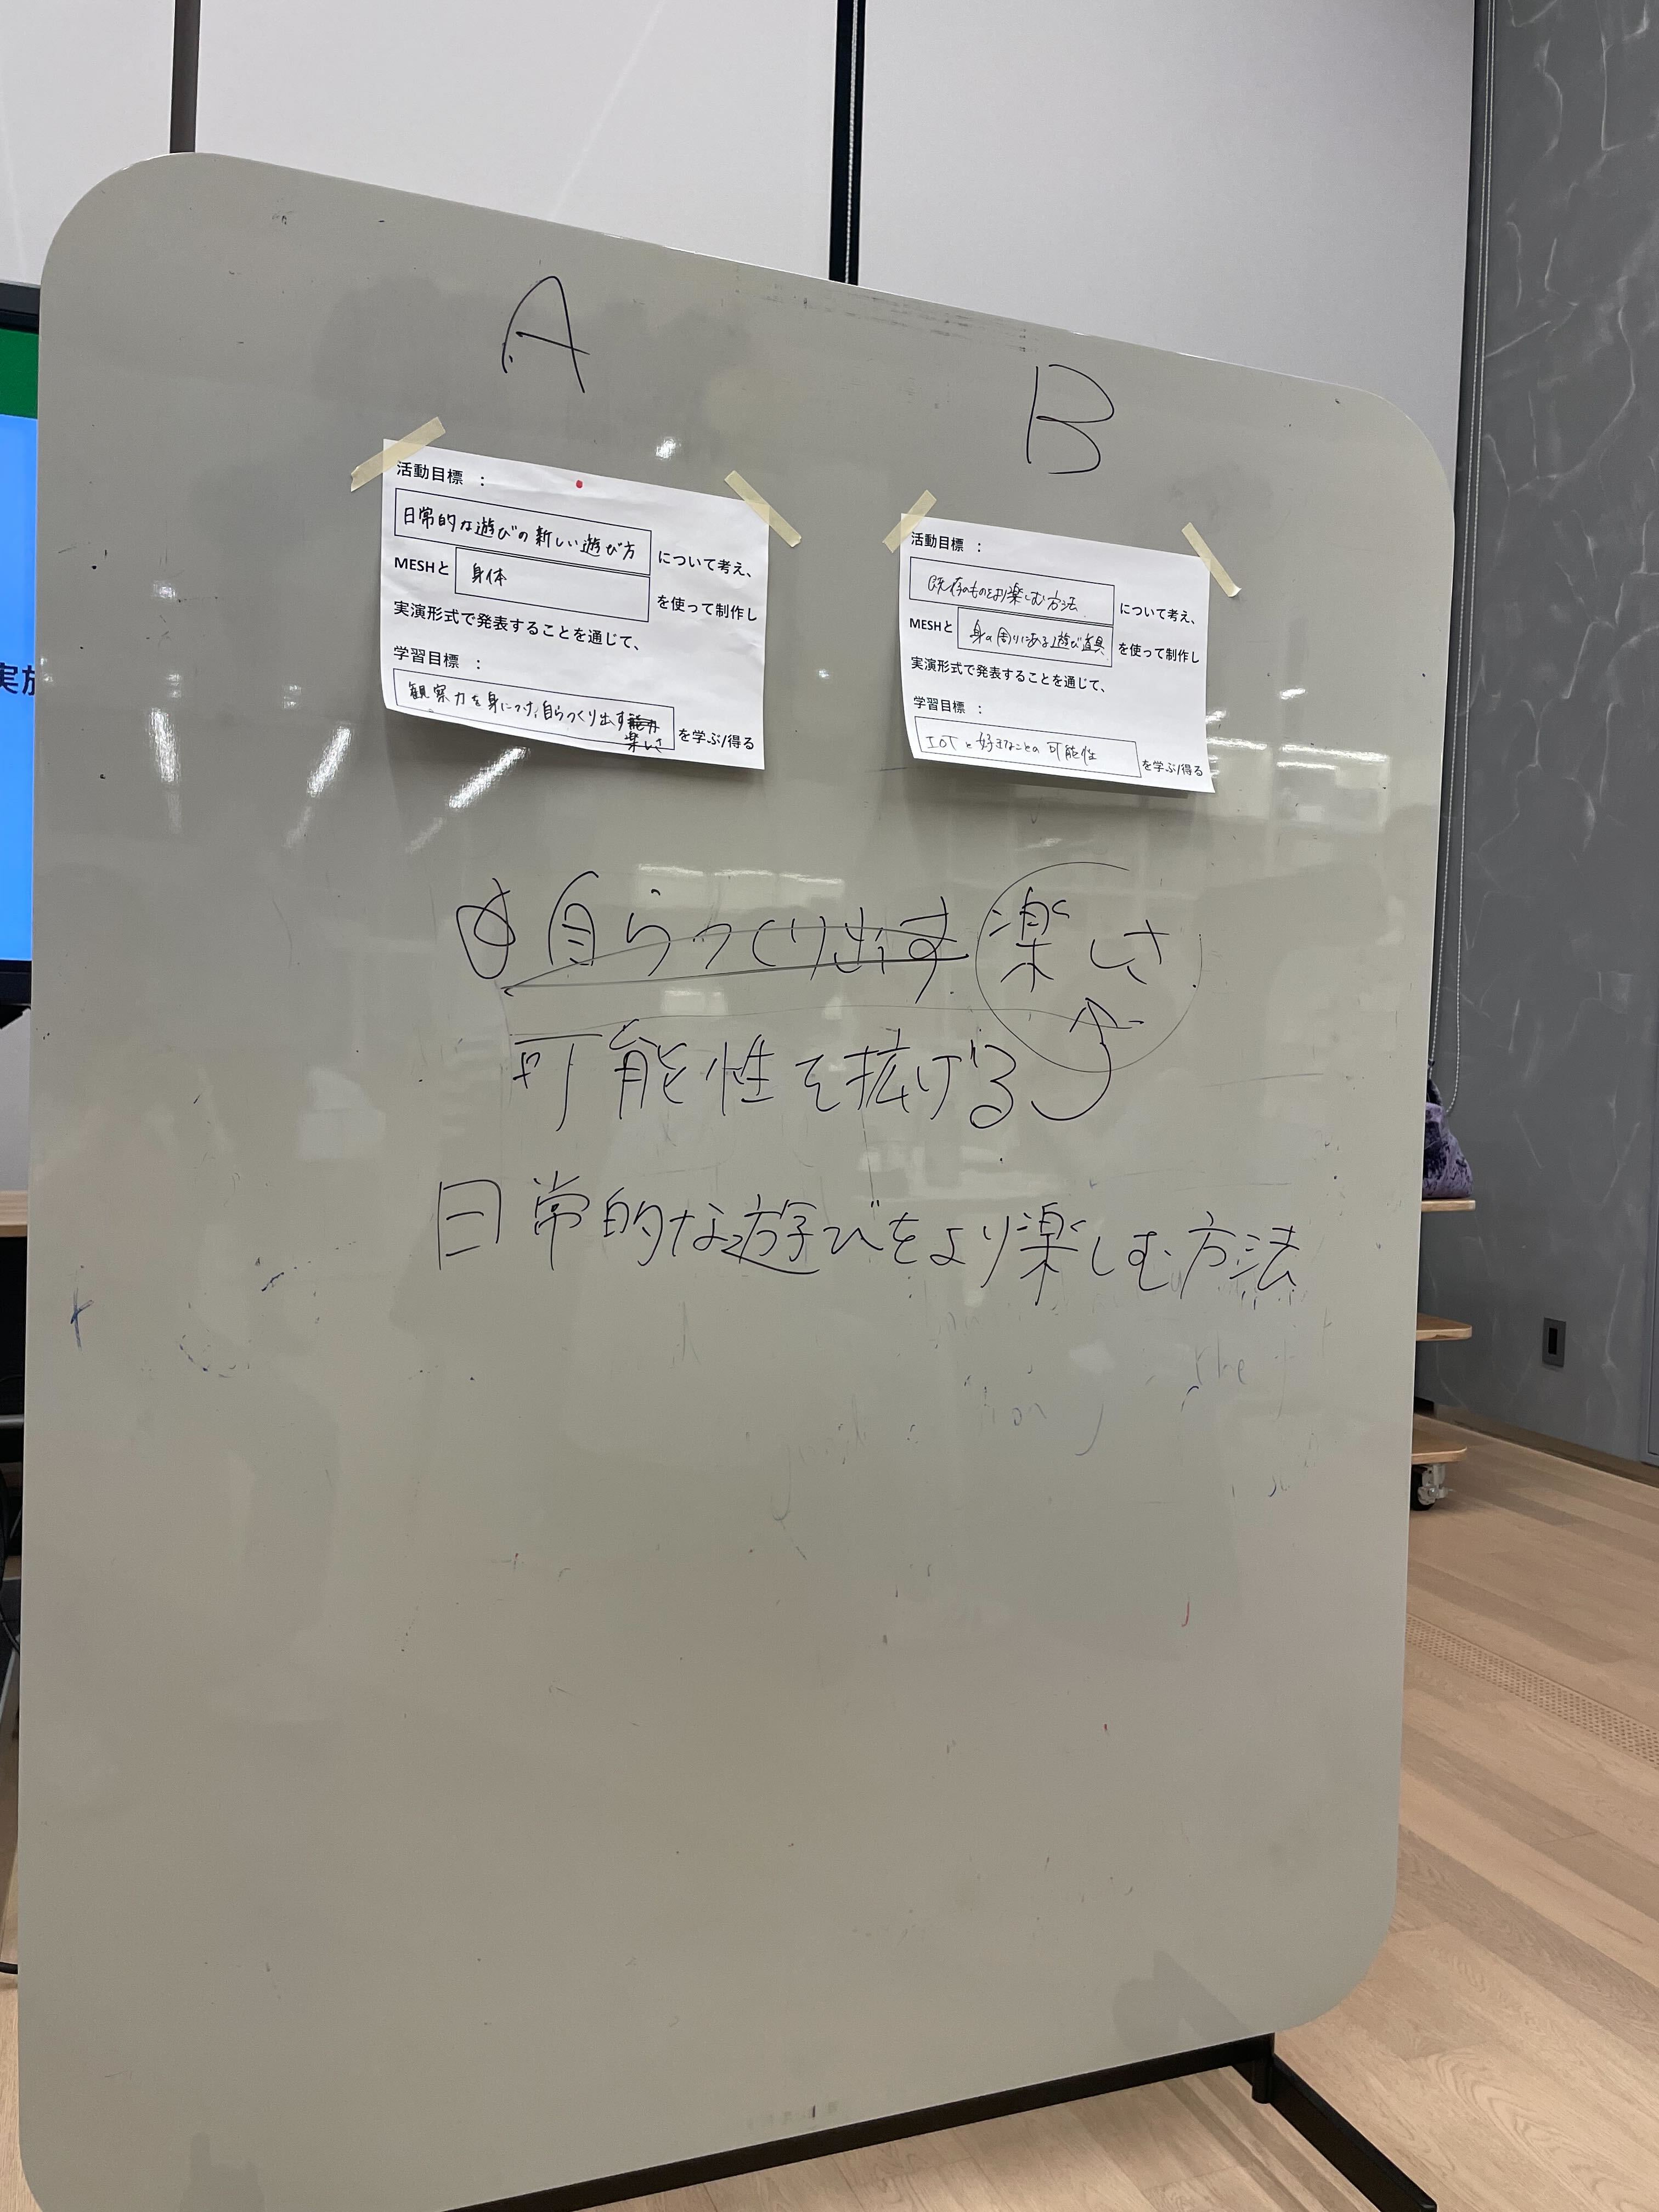 A
活動目標 :
日常的な遊びの新しい遊び方 について考え、
MESHと 身体 を使って制作し
実演形式で発表することを通じて、
学習目標 :
観察力を身につけ、自らつくり出す能力 を学ぶ/得る
楽しさ
B
活動目標 :
既存のものをより楽しむ方法 について考え、
MESHと 身の周りにある遊び道具 を使って制作し
実演形式で発表することを通じて、
学習目標 :
IoTと好きなことの可能性 を学ぶ/得る
自らつくり出す 楽しさ
可能性を拡げる
日常的な遊びをより楽しむ方法
実施